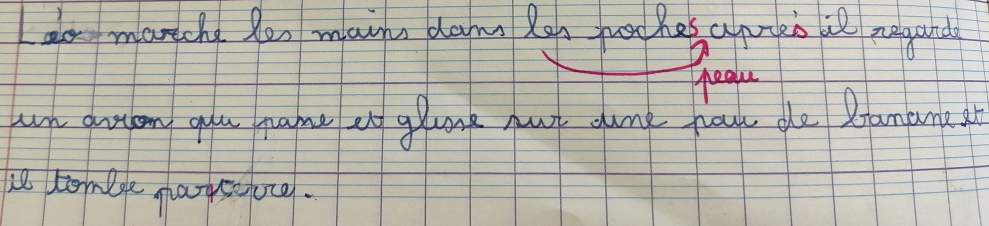 Léo marche les mains dans les poches après il regarde
peau
un avion qui passe et glisse sur une pau de banane et
il tombe parterre.